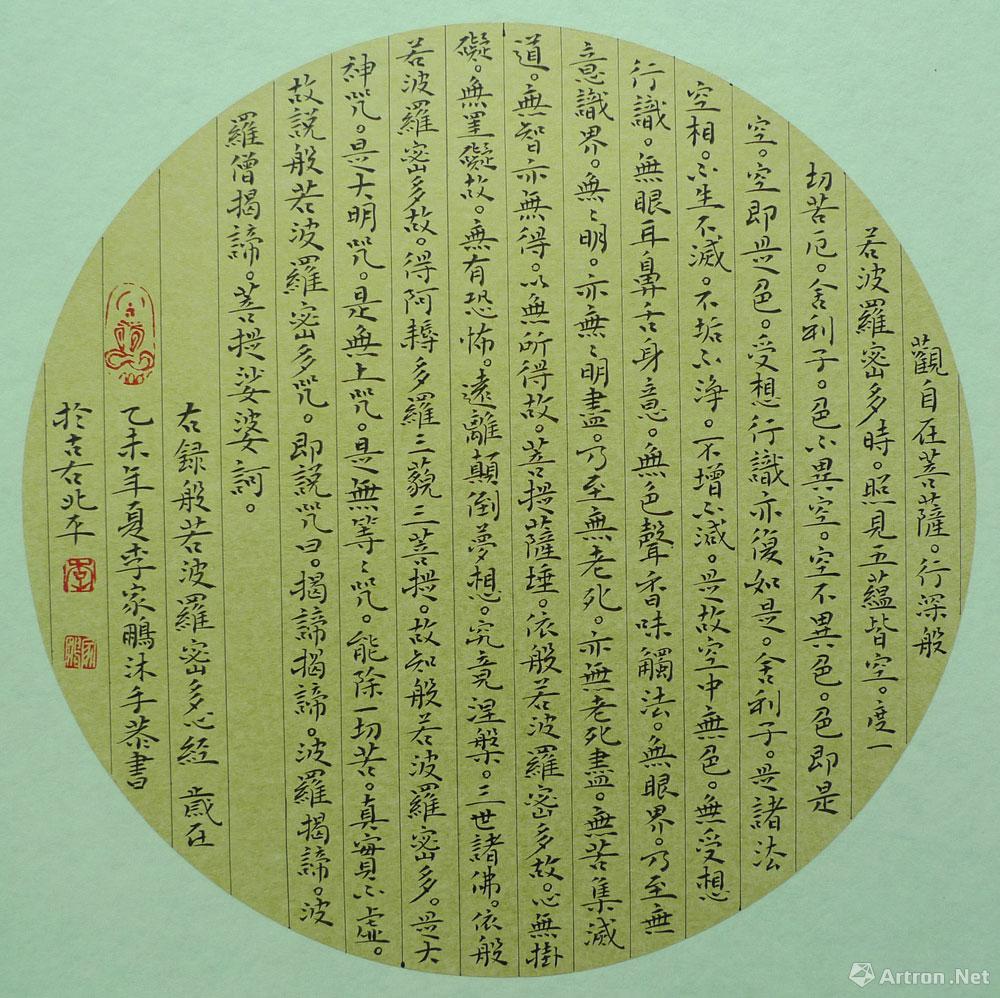 觀自在菩薩。行深般
若波羅密多時。照見五蘊皆空。度一
切苦厄。舍利子。色不異空。空不異色。色即是
空。空即是色。受想行識亦復如是。舍利子。是諸法
空相。不生不滅。不垢不净。不增不減。是故空中無色。無受想
行識。無眼耳鼻舌身意。無色聲香味觸法。無眼界。乃至無
意識界。無〻明。亦無〻明盡。乃至無老死。亦無老死盡。無苦集滅
道。無智亦無得。以無所得故。菩提薩埵。依般若波羅密多故。心無掛
礙。無罣礙故。無有恐怖。遠離顛倒夢想。究竟涅槃。三世諸佛。依般
若波羅密多故。得阿耨多羅三藐三菩提。故知般若波羅密多。是大
神咒。是大明咒。是無上咒。是無等〻咒。能除一切苦。真實不虛。
故説般若波羅密多咒。即説咒曰。揭諦揭諦。波羅揭諦。波
羅僧揭諦。菩提娑婆訶。
右録般若波羅密多心經 歲在
乙未年夏李家鵬沐手恭書
於古右北平
李
Artron.Net